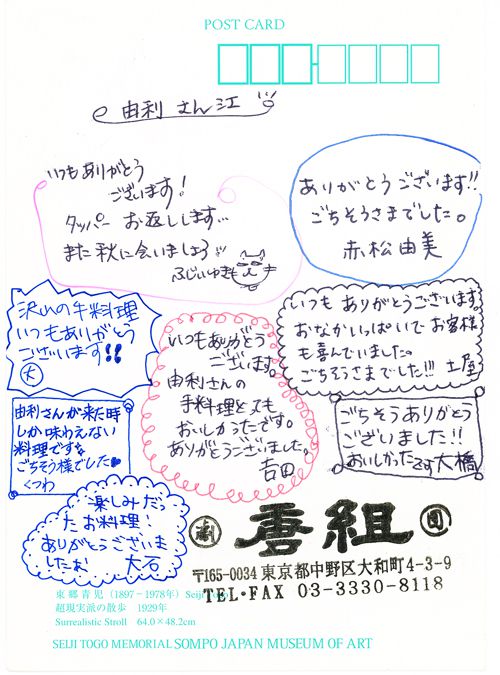 POST CARD
由利さん江
いつもありがとう
ございます!
タッパー お返しします…
また秋に会いましょう
ふじいゆき
ありがとうございます!!
ごちそうさまでした。
赤松由美
沢山の手料理
いつもありがとう
ございます!!
大
いつもありがとう
ございます。
由利さんの
手料理とても
おいしかったです。
ありがとうございました。
吉田
いつもありがとうございます。
おなかいっぱいで お客様
も喜んでいました。
ごちそうさまでした!!! 土屋
由利さんが来た時
しか味わえない
料理です
ごちそう様でした
くつわ
ごちそうありがとう
ございました!!
おいしかったです 大橋
楽しみだっ
たお料理!
ありがとうございま
した 大石
劇 唐組 団
〒165-0034 東京都中野区大和町4-3-9
TEL・FAX 03-3330-8118
東郷青児 (1897-1978年) Seiji
超現実派の散歩 1929年
Surrealistic Stroll 64.0×48.2cm
SEIJI TOGO MEMORIAL SOMPO JAPAN MUSEUM OF ART